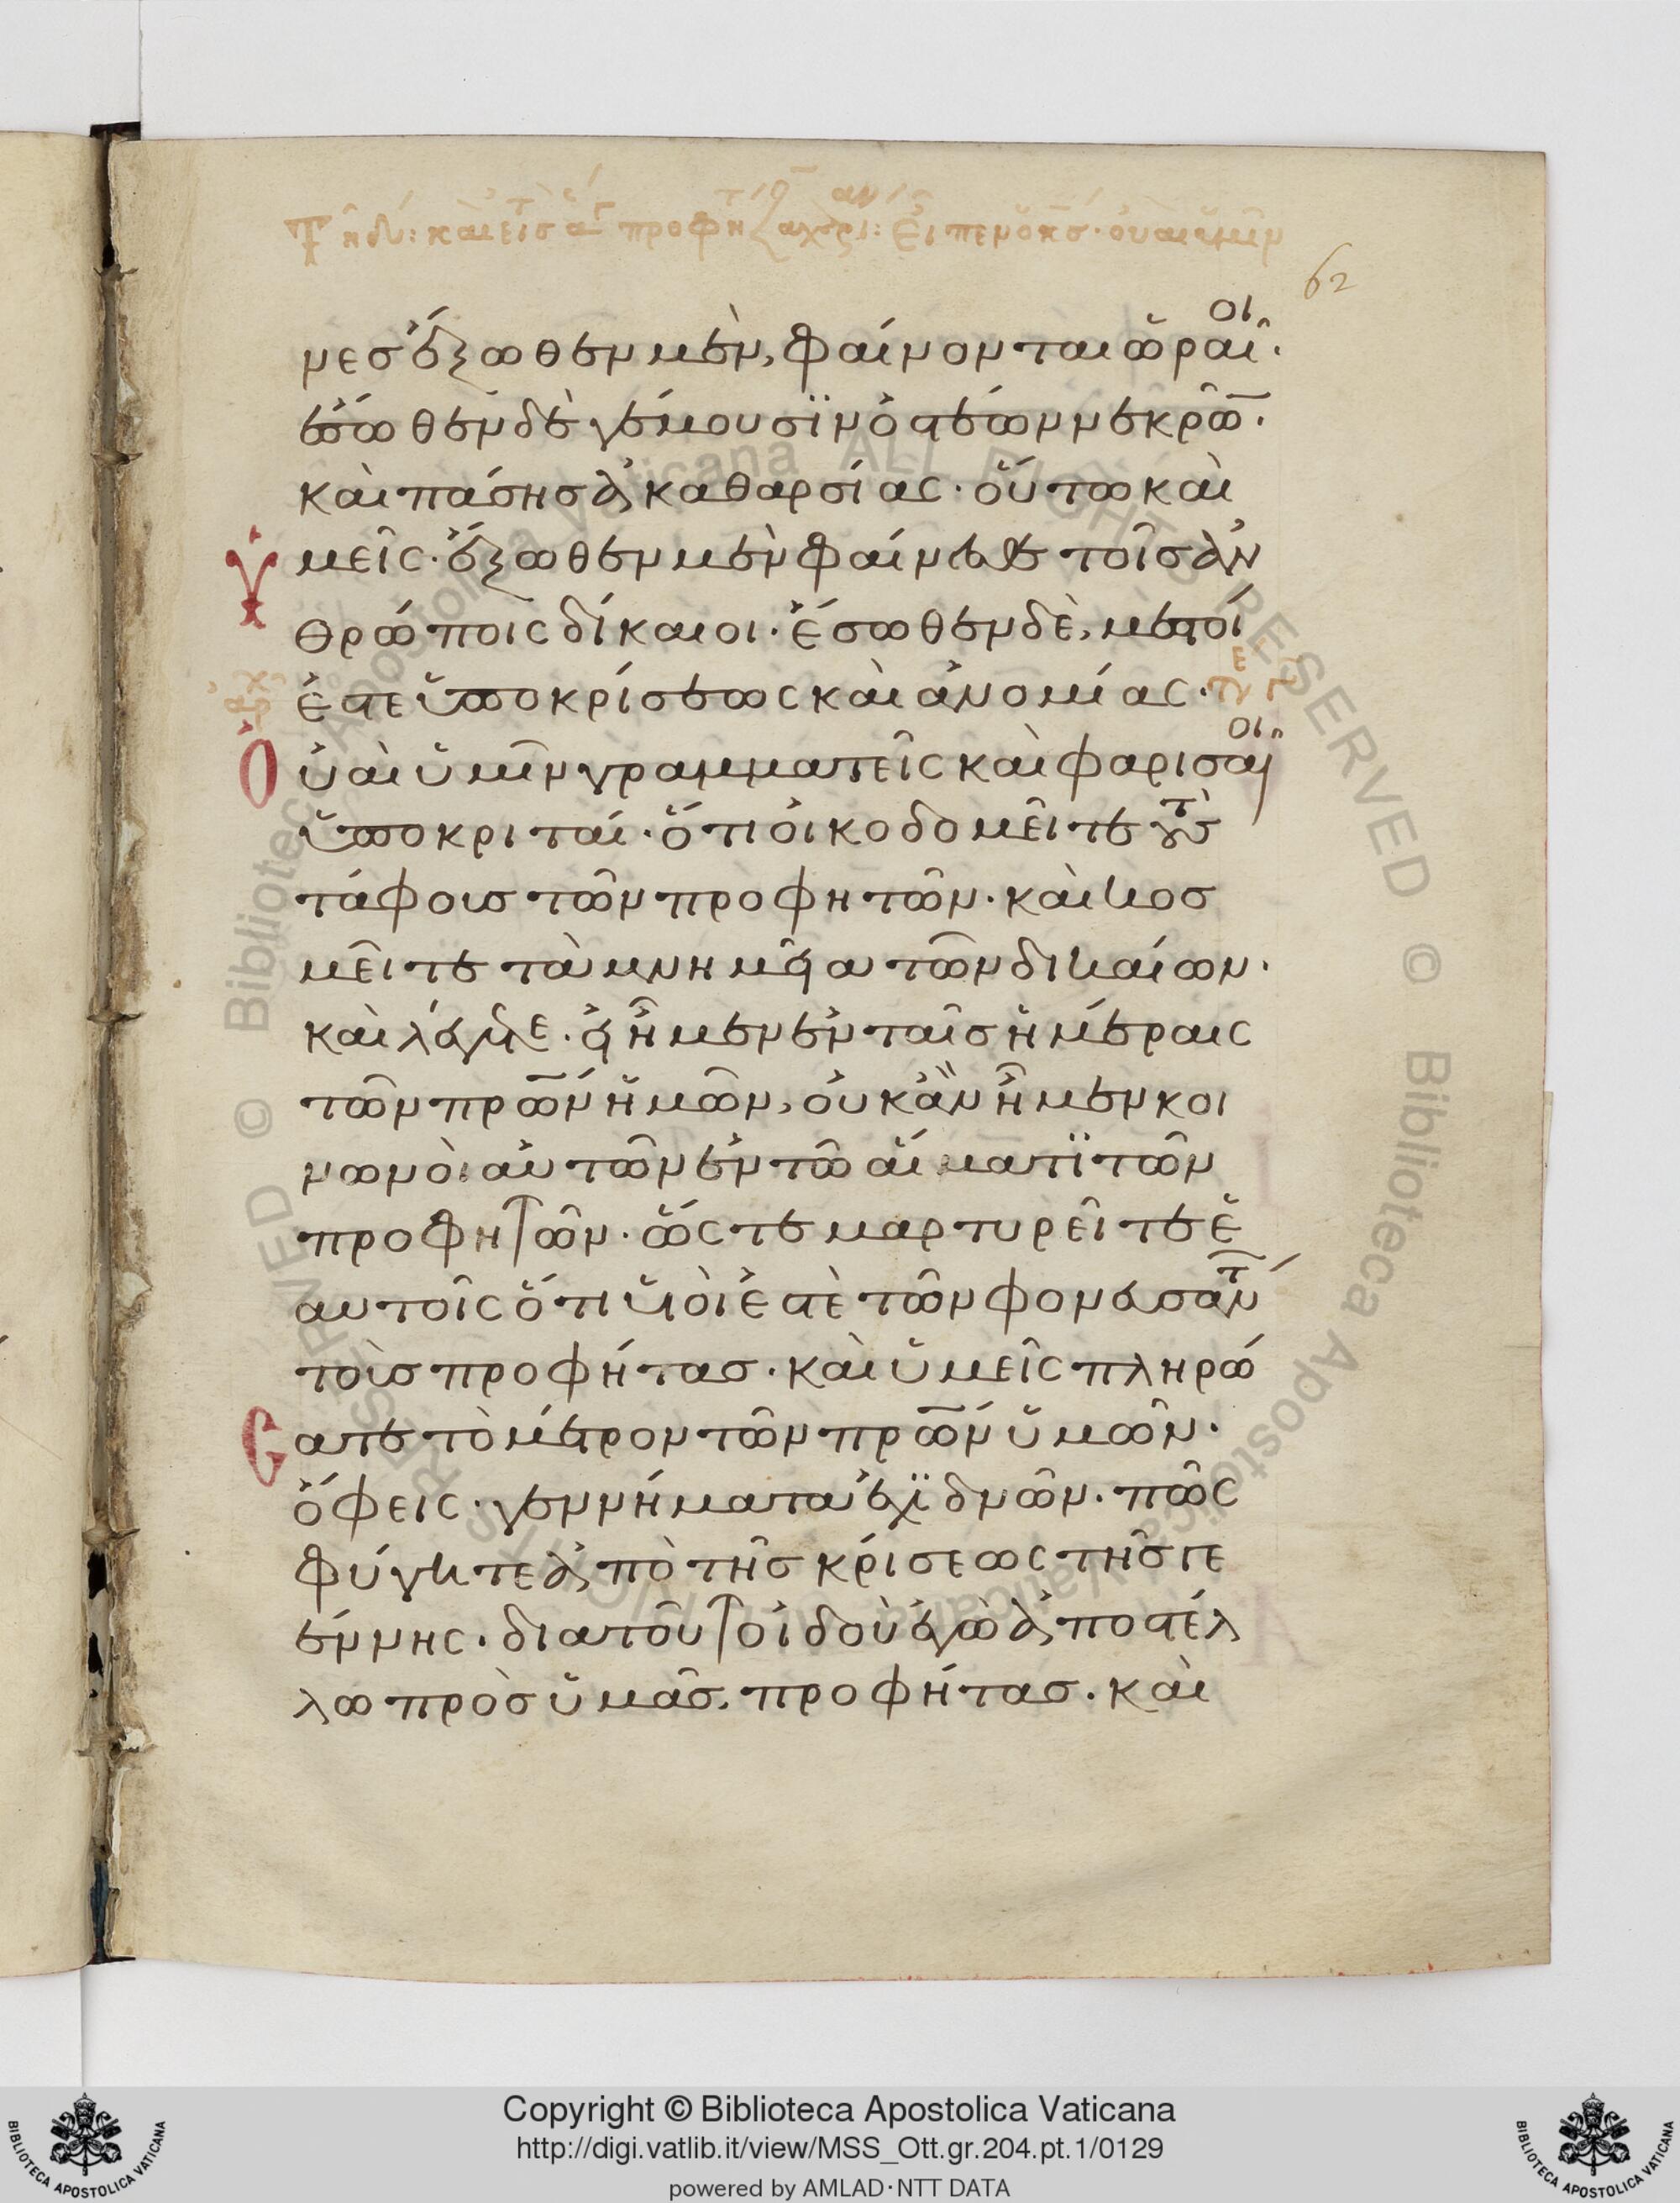 62
νες ἔξωθεν μὲν, φαίνονται ὡραῖοι·
ἔσωθεν δὲ γέμουσϊν ὀστέων νεκρῶ·
καὶ πάσης ἀκαθαρσίας· οὕτω καὶ
ὑμεῖς· ἔξωθεν μὲν φαίνεσθε τοῖς ἀν
θρώποις δίκαιοι· ἔσωθεν δὲ, μεστοί
ἐστε ὑποκρίσεως καὶ ἀνομίας·
Οὐαὶ ὑμῖν γραμματεῖς καὶ φαρισαῖοι
ὑποκριταί· ὅτι οἰκοδομεῖτε τοὺς
τάφους τῶν προφητῶν· καὶ κοσ
μεῖτε τὰ μνημεῖα τῶν δικαίων·
καὶ λέγετε· εἰ ἦμεν ἐν ταῖς ἡμέραις
τῶν πρων ἡμῶν, οὐκ ἂν ἦμεν κοι
νωνοὶ αὐτῶν ἐν τῶ αἵματϊ τῶν
προφητῶν· ὥστε μαρτυρεῖτε ἑ
αυτοῖς ὅτι υἱοί ἐστὲ τῶν φονευσάντ
τοὺς προφήτας· καὶ ὑμεῖς πληρώ
σατε τὸ μέτρον τῶν πρων ὑμῶν·
ὄφεις· γεννήματα ἐχϊδνῶν· πῶς
φύγητε ἀπὸ τῆς κρίσεως τῆς γε
έννης· διατοῦτο ἰδοὺ ἐγὼ ἀποστέλ
λω πρὸς ὑμᾶς, προφήτας· καὶ
Copyright © Biblioteca Apostolica Vaticana
http://digi.vatlib.it/view/MSS_Ott.gr.204.pt.1/0129
powered by AMLAD·NTT DATA